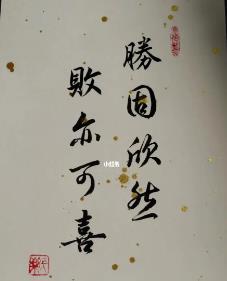 勝固欣然
敗亦可喜
小红书